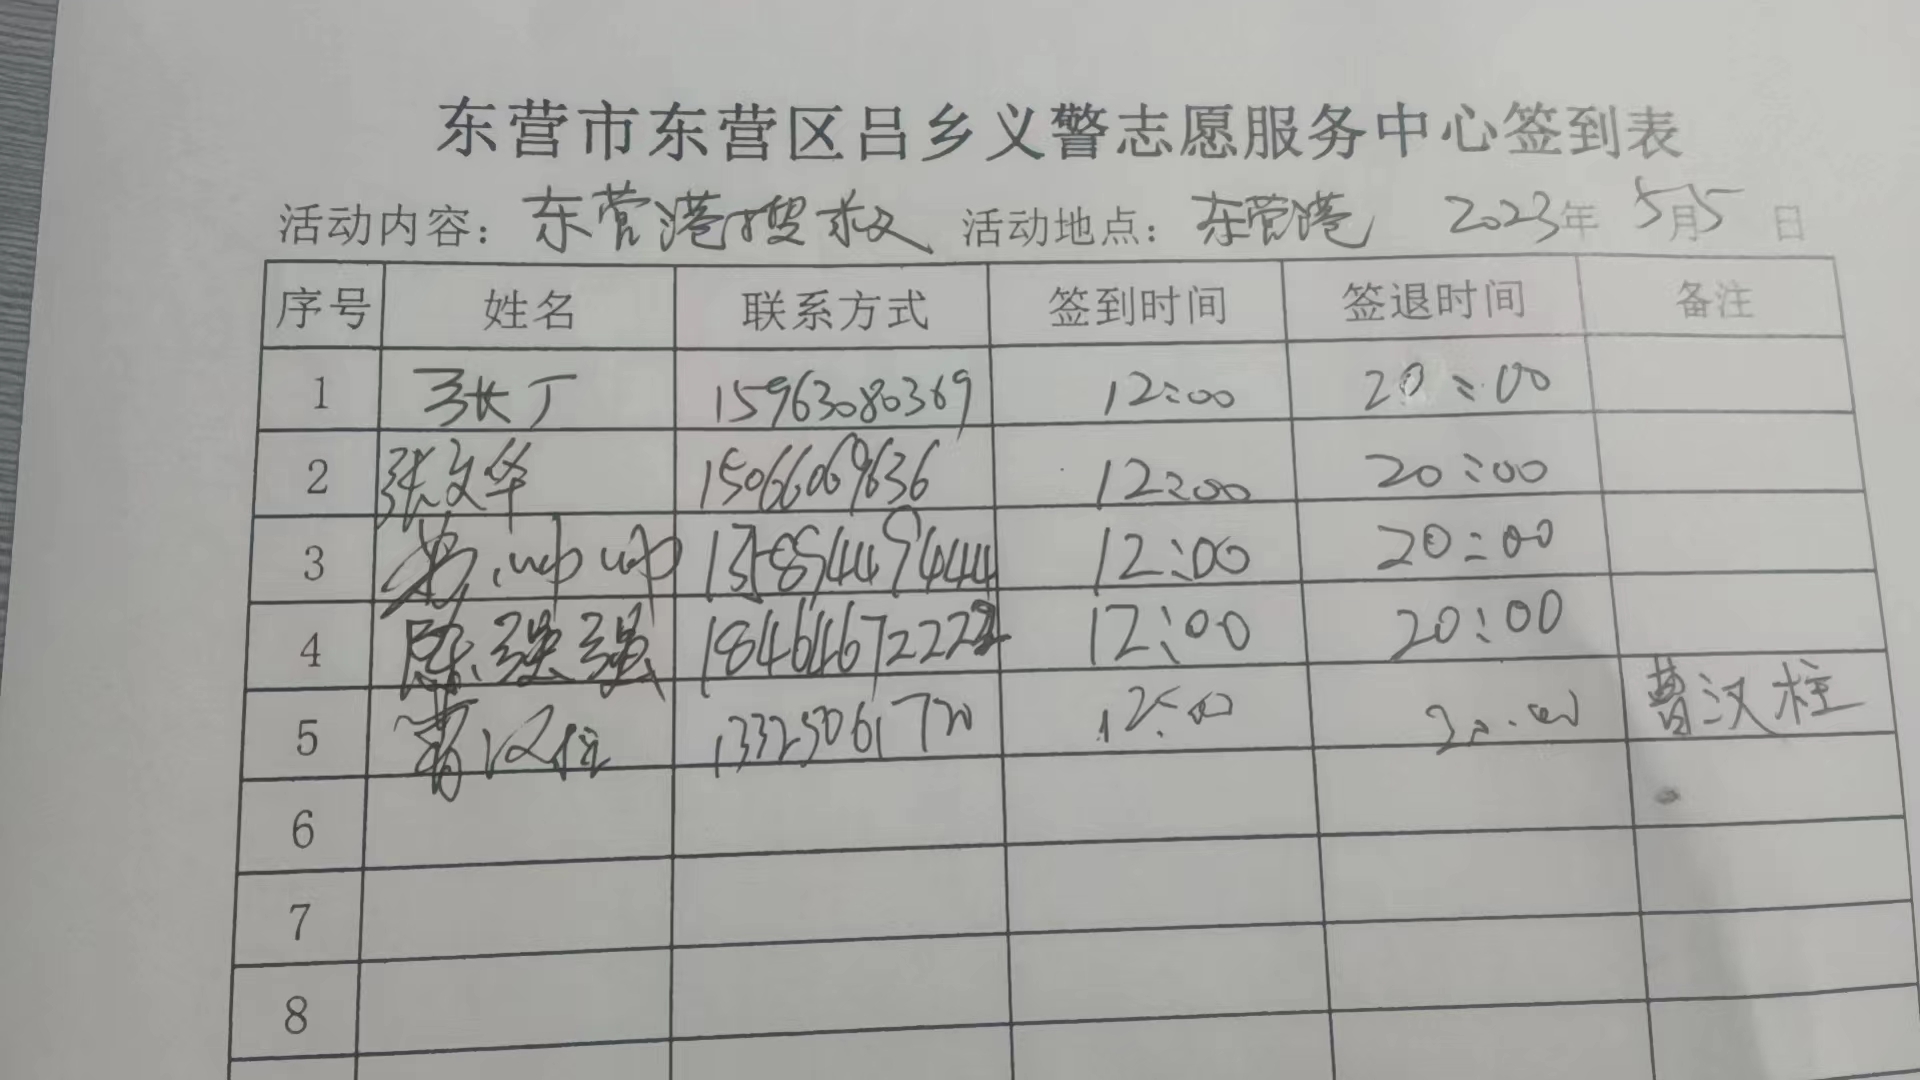 东营市东营区吕乡义警志愿服务中心签到表
活动内容：东营港搜救 活动地点：东营港 2023年 5月5日
序号 姓名 联系方式 签到时间 签退时间 备注
1 张丁 15963080369 12:00 20:00
2 张文华 15066069636 12:00 20:00
3 12:00 20:00
4 陈强强 18464672222 12:00 20:00
5 曹汉柱 13325061720 12:00 20:00 曹汉柱
6
7
8